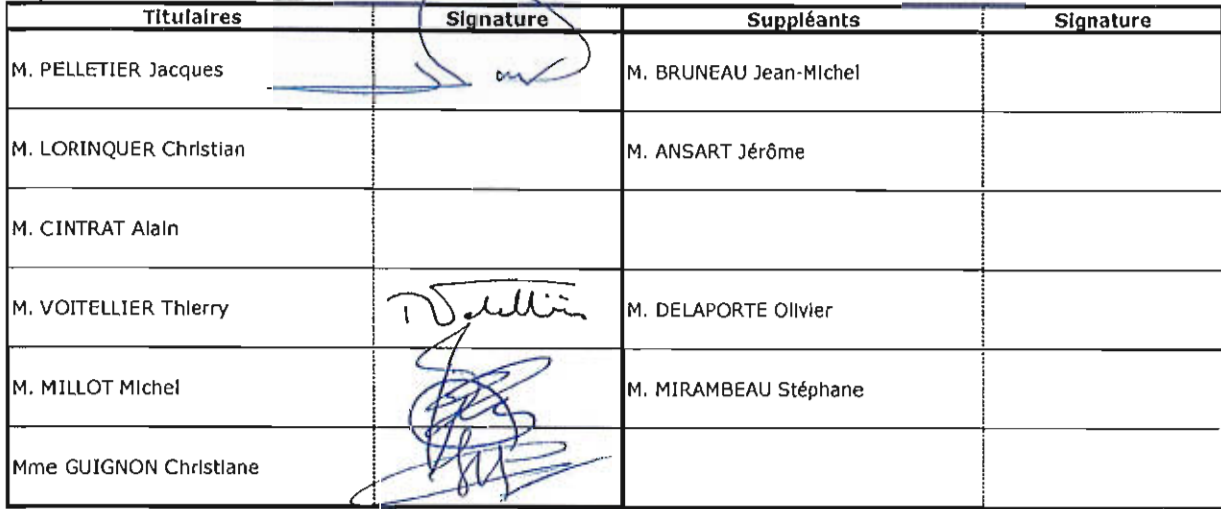 Titulaires Signature Suppléants Signature
M. PELLETIER Jacques M. BRUNEAU Jean-Michel
M. LORINQUER Christian M. ANSART Jérôme
M. CINTRAT Alain
M. VOITELLIER Thierry M. DELAPORTE Olivier
M. MILLOT Michel M. MIRAMBEAU Stéphane
Mme GUIGNON Christiane